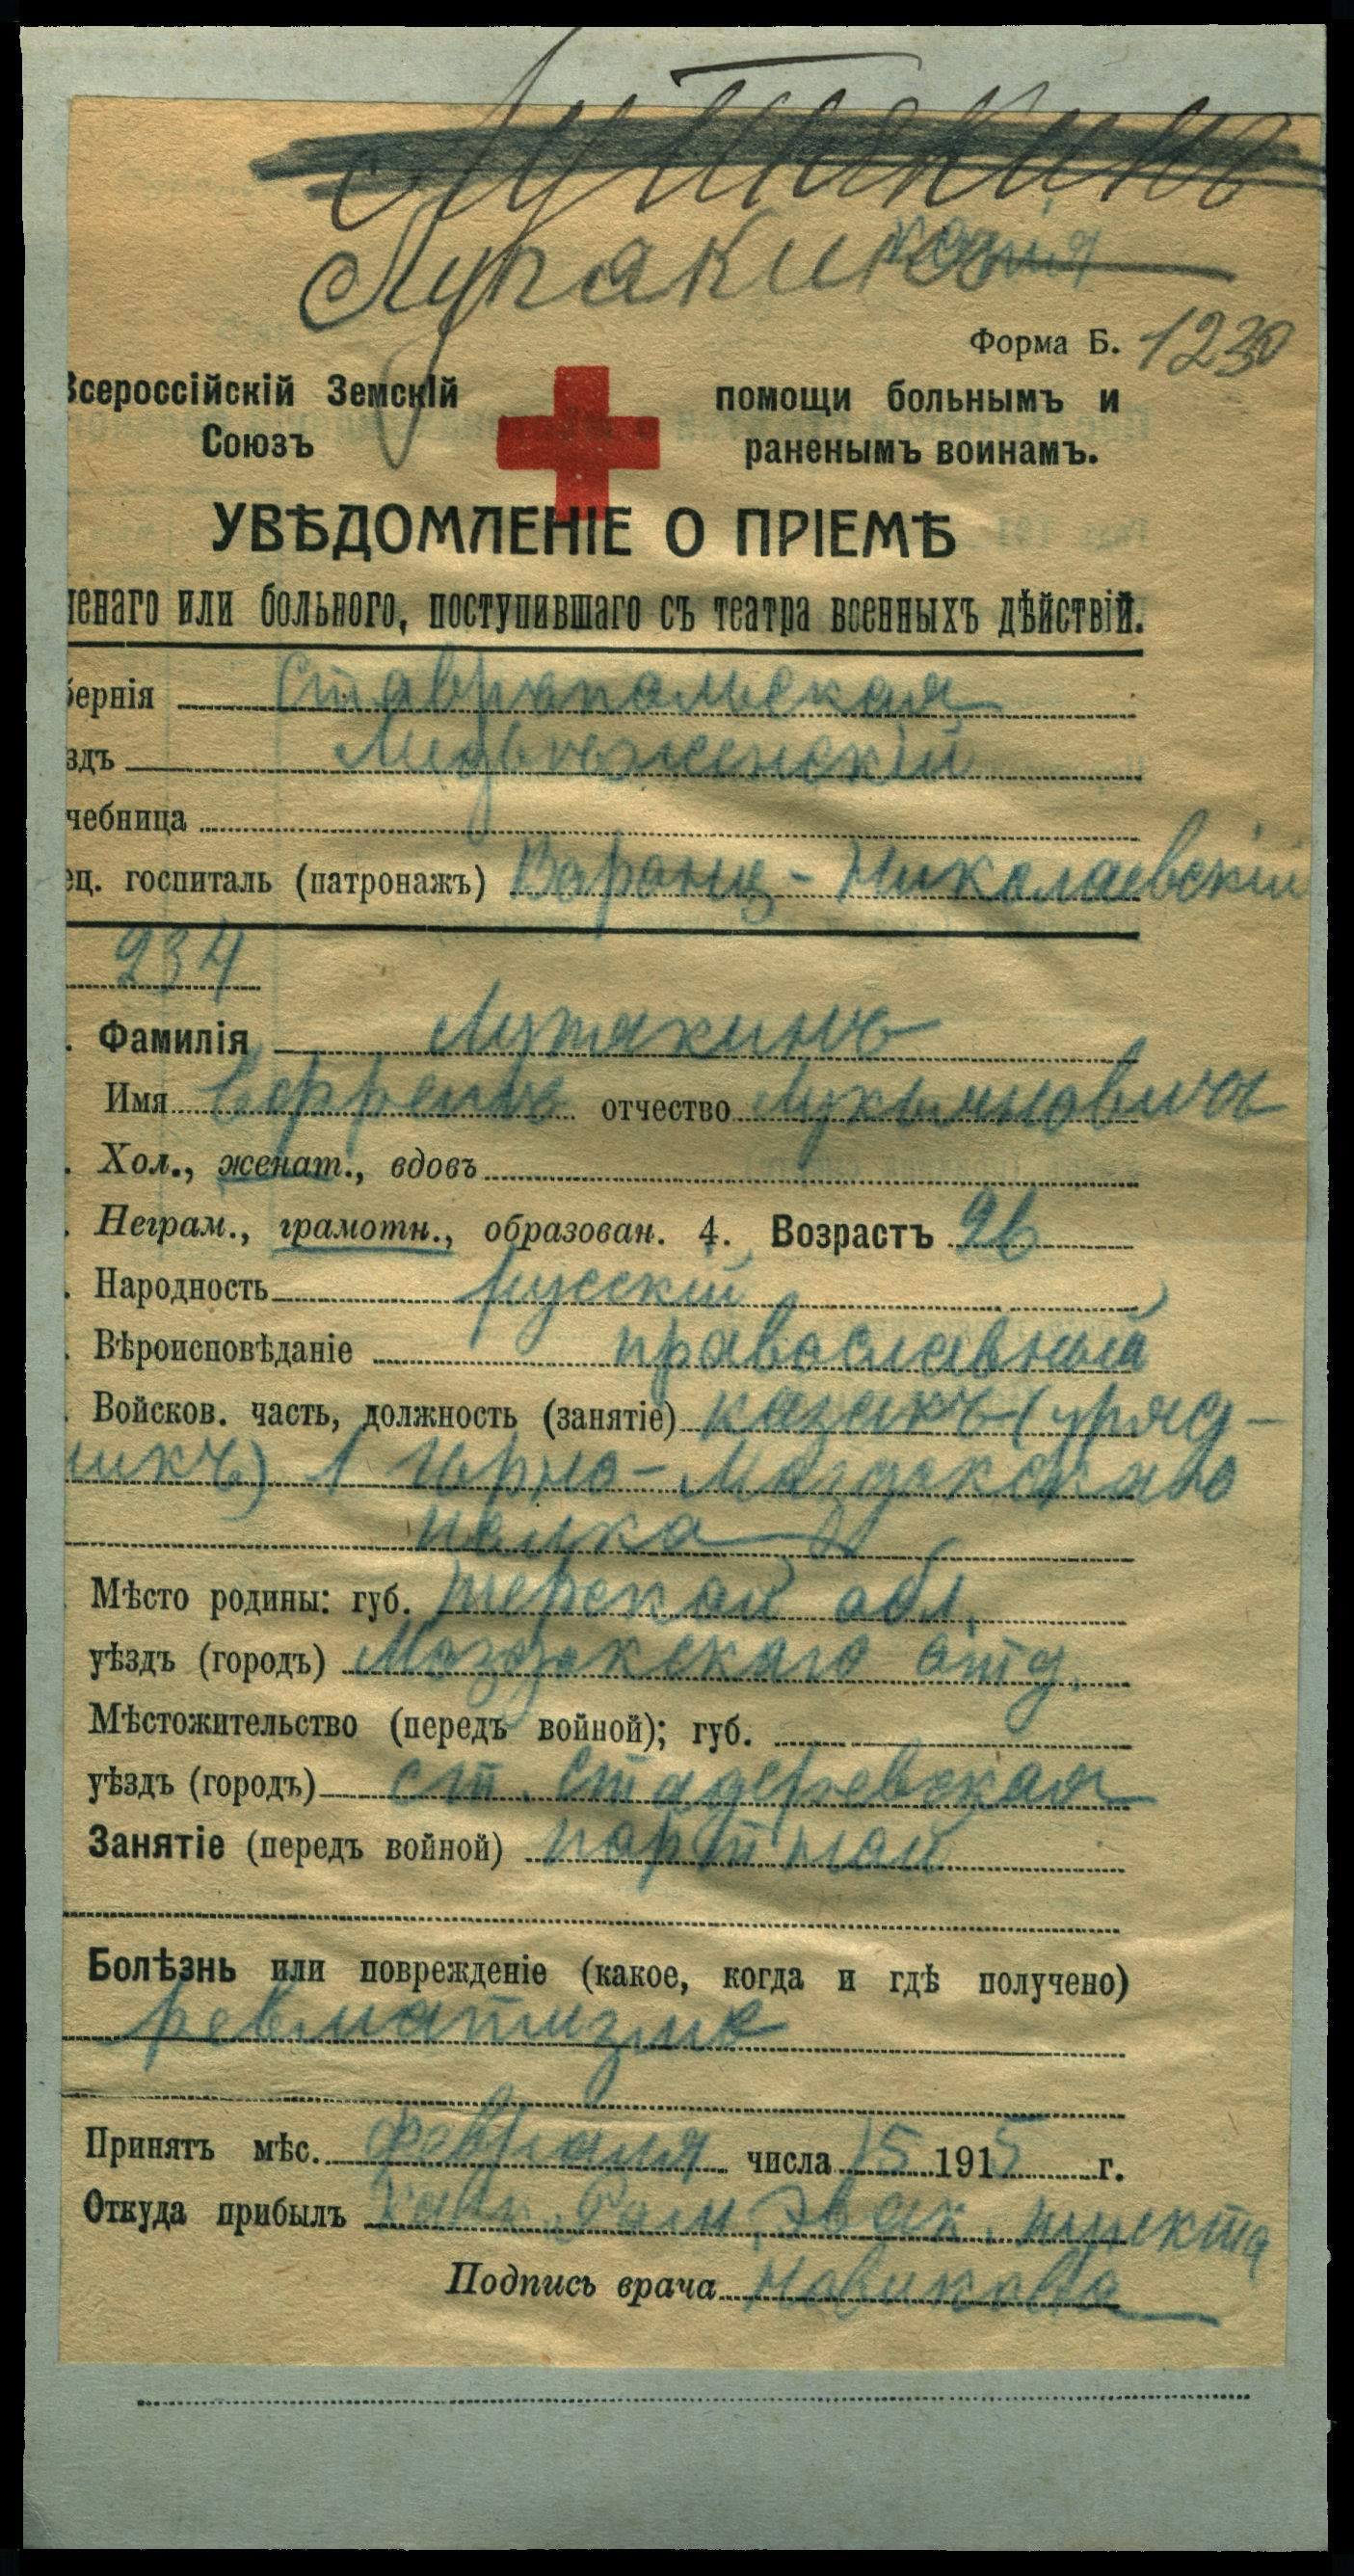 Лутакинъ
Луракинъ
копія
Форма Б. 1230
Всероссійскій Земскій
Союзъ
помощи больнымъ и
раненымъ воинамъ.
УВѢДОМЛЕНІЕ О ПРІЕМѢ
ненаго или больного, поступившаго съ театра военныхъ дѣйствій.
бернія Ставропольская
здъ Медвеженскій
чебница
ец. госпиталь (патронажъ) Воронц-Николаевскій
234
Фамилія Лутакинъ
Имя отчество Лукьяновичъ
Хол., женат., вдовъ
Неграм., грамотн., образован. 4. Возрастъ 26
Народность русскій
Вѣроисповѣданіе православный
Войсков. часть, должность (занятіе) казакъ (уряд-
никъ) 1 Горно-Моздокскаго
полка
Мѣсто родины: губ. терской обл.
уѣздъ (городъ) Моздокскаго отд.
Мѣстожительство (передъ войной); губ.
уѣздъ (городъ) ст. Стадеревская
Занятіе (передъ войной) портной
Болѣзнь или поврежденіе (какое, когда и гдѣ получено)
ревматизмъ
Принятъ мѣс. февраля числа 15 1915 г.
Откуда прибылъ Кавк. эвак. пункта
Подпись врача Новикова